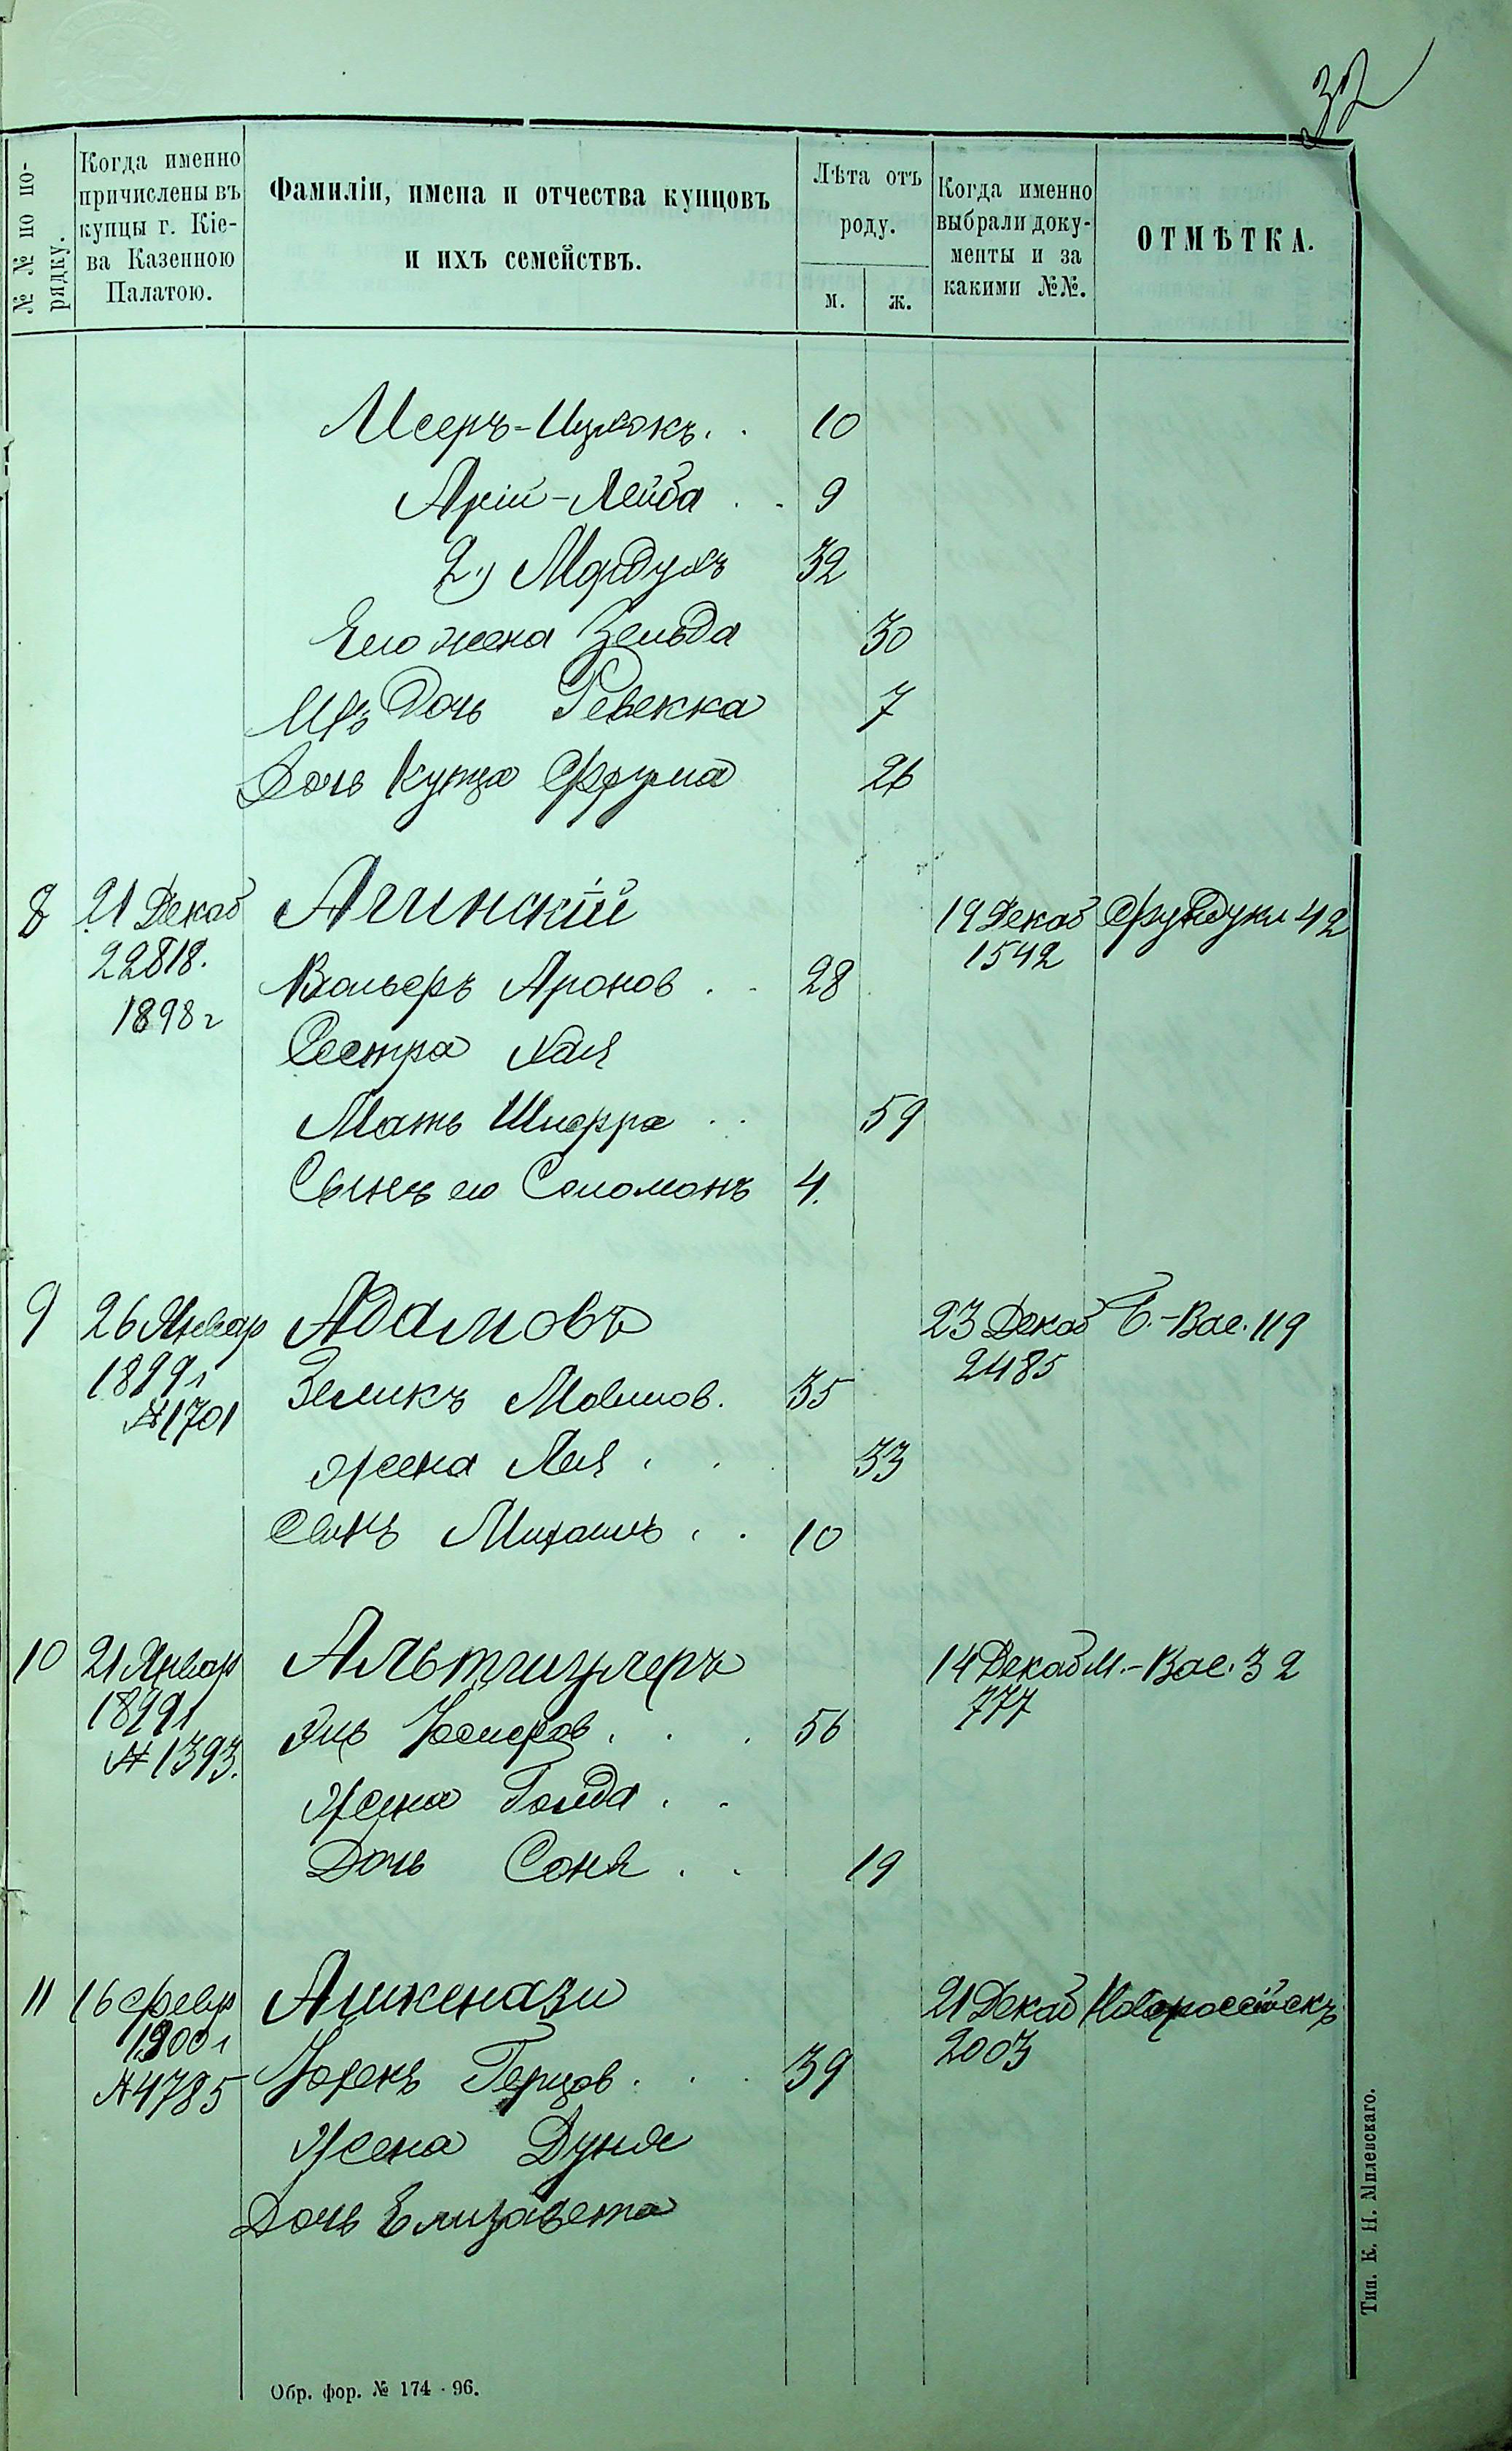 32
№ № по по-
рядку.
Когда именно
причислены въ
купцы г. Кіе-
ва Казенною
Палатою.
Фамиліи, имена и отчества купцовъ
и ихъ семействъ.
Лѣта отъ
роду.
м. ж.
Когда именно
выбрали доку-
менты и за
какими №№.
ОТМѢТКА.
Мееръ-Ицхокъ. . 10
Арій-Лейба . . 9
2) Мордухъ 32
Его жена Зельда 30
Ихъ Дочь Ревекка 7
Дочь Купца Фрума 26
8 21 Декаб Агинскій 19 Декаб Фундукл 42
22818. 1542
1898 г Вольфъ Аронов . . 28
Сестра Хая
Мать Шифра . . 59
Сынъ его Соломонъ 4.
9 26 Январ Адамовъ 23 Декаб Б.-Вас. 119
1899 г Зеликъ Мовшов. 35 2485
№ 1701
жена Лея . . 33
Сынъ Михаилъ . . 10
10 21 Январ Альтшулеръ 14 Декаб М.-Вас. 32
1899 г 777
№ 1393. Эль . . . 56
Жена Голда . .
Дочь Соня . . 19
11 16 Февр Ашкенази 21 Декаб Новороссійскъ
1900 г 2003
№ 4785 Герцов . . . 39
Жена Дуня
Дочь Елизавета
Обр. фор. № 174 - 96.
Тип. К. Н. Милевскаго.